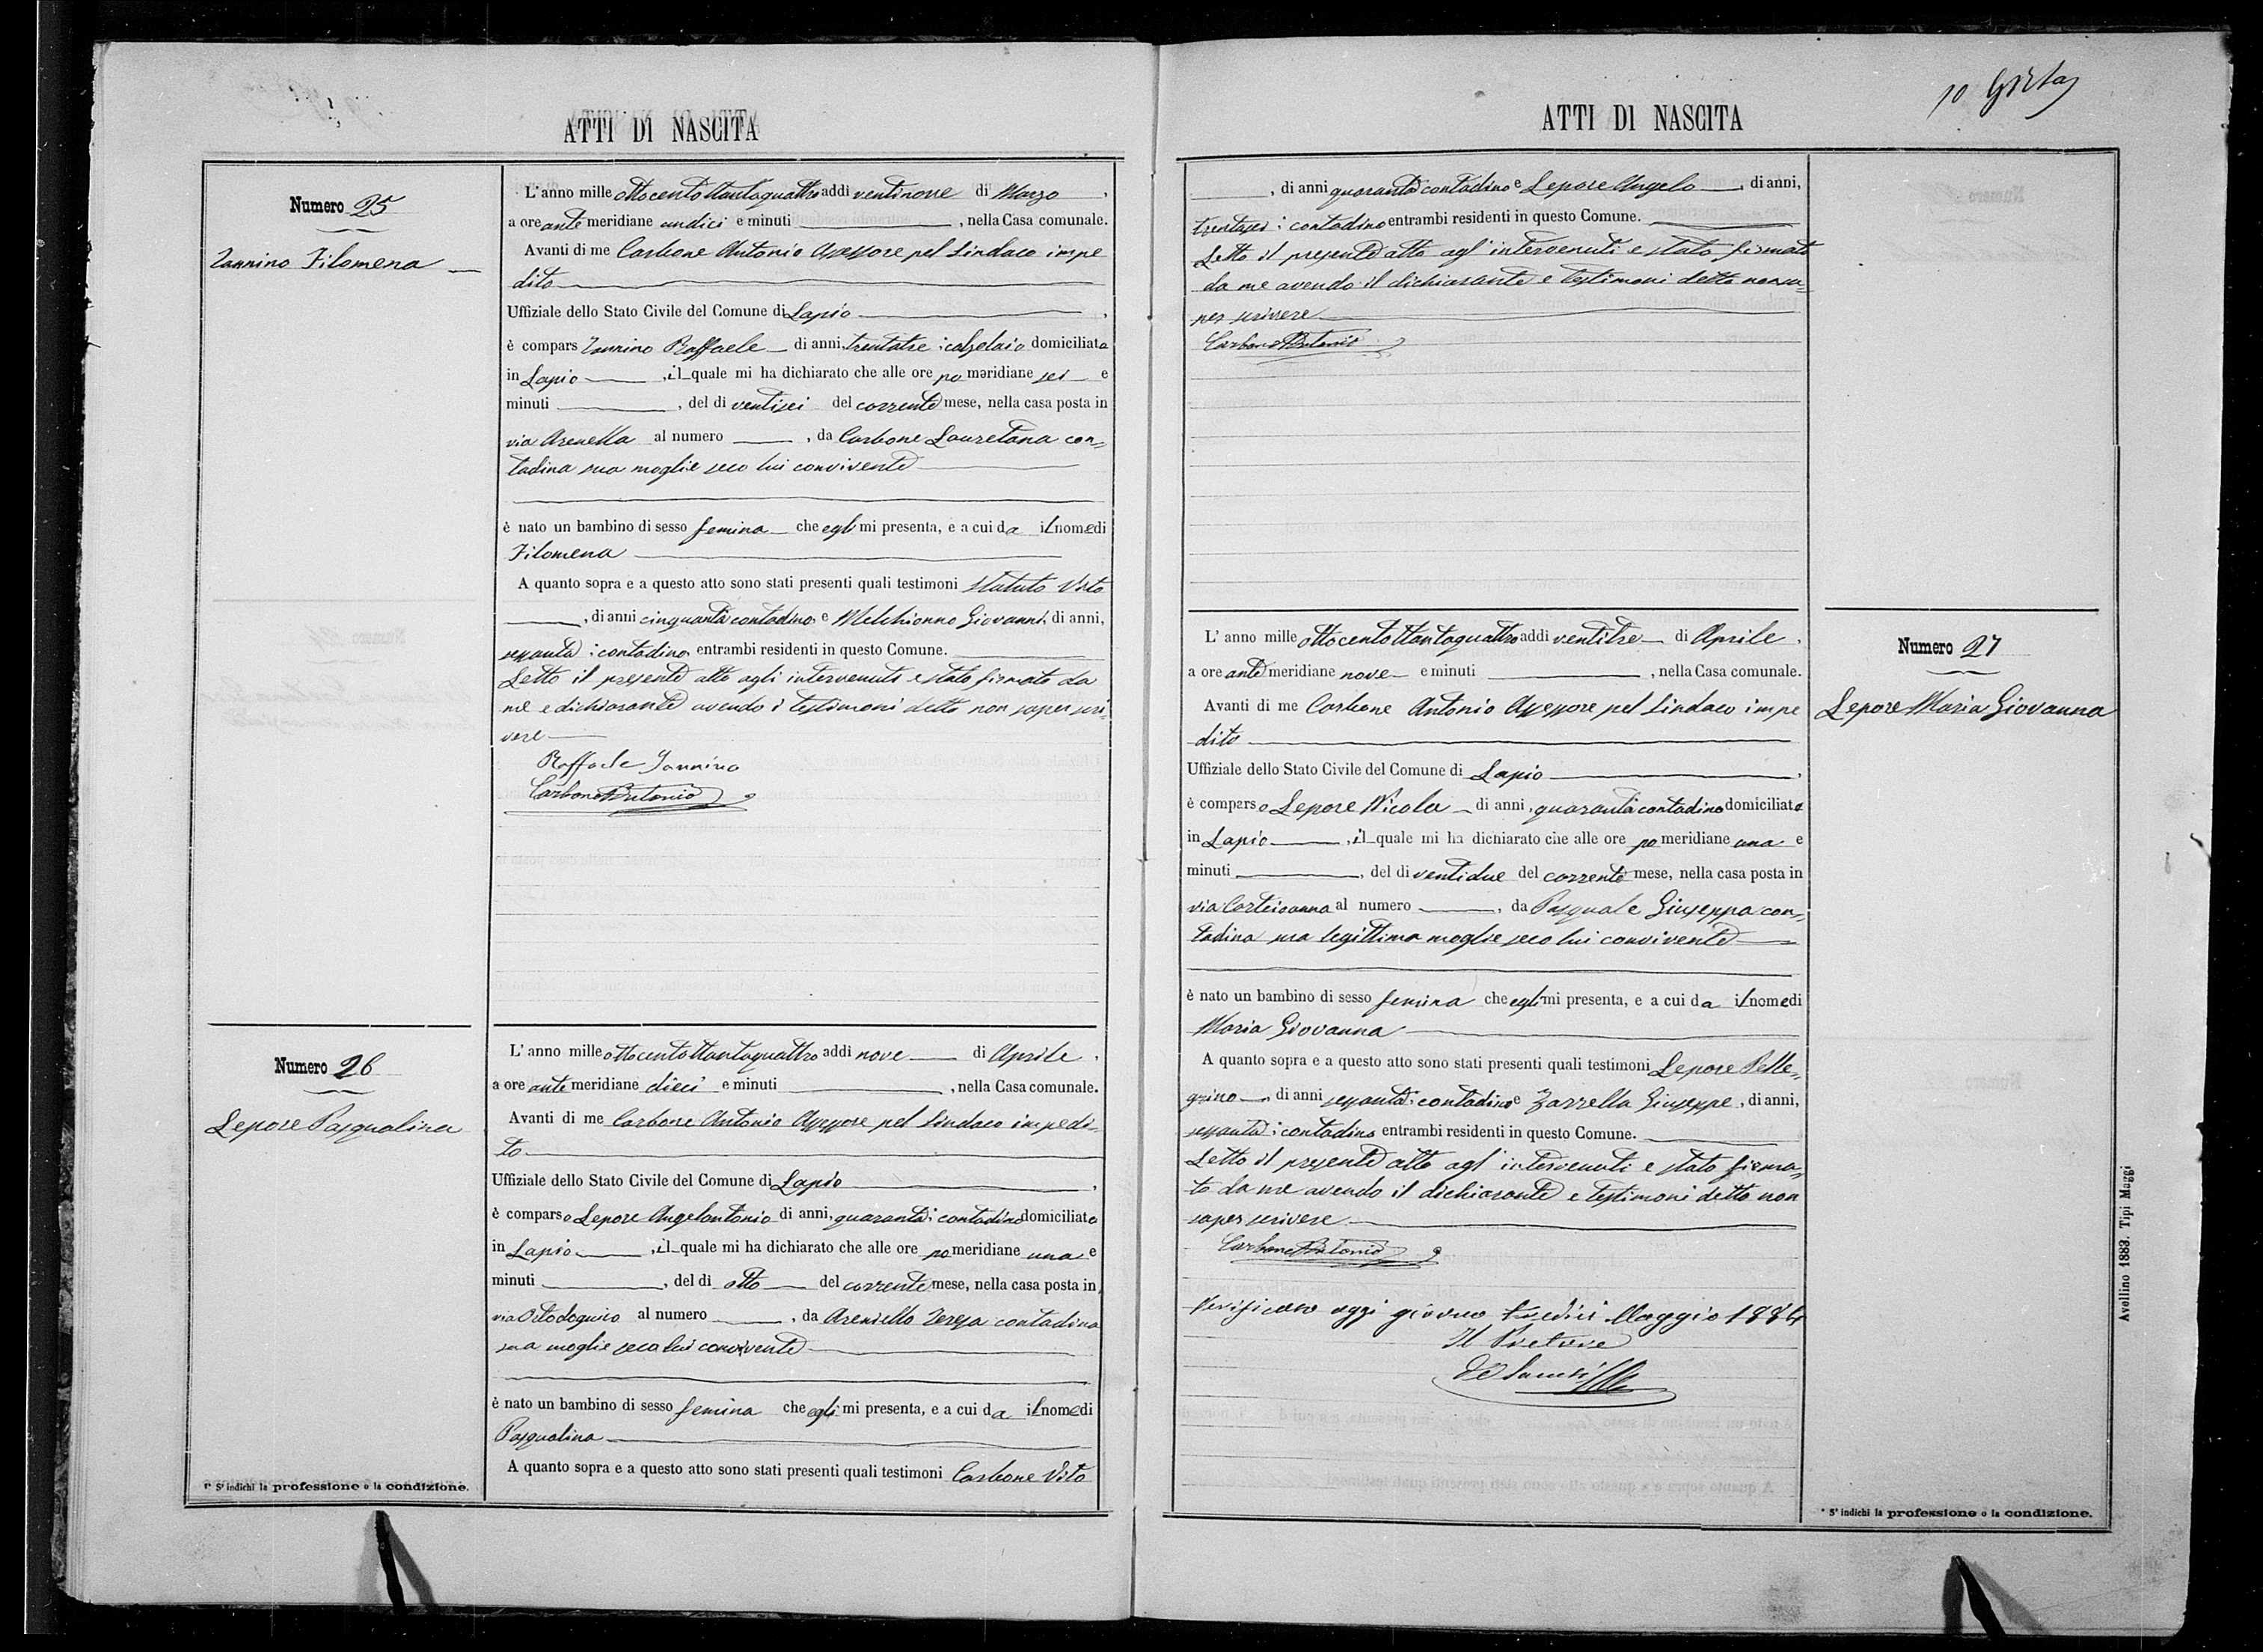 ATTI DI NASCITA
Numero 25
Iannino Filomena
L'anno mille ottocentottantaquattro addi ventinove di Marzo,
a ore ante meridiane undici e minuti , nella Casa comunale.
Avanti di me Carbone Antonio Assessore pel Sindaco impe
dito
Uffiziale dello Stato Civile del Comune di Lapio,
è compars Iannino Raffaele di anni, trentatre; calzolaio domiciliato
in Lapio, il quale mi ha dichiarato che alle ore po meridiane sei e
minuti , del di ventisei del corrente mese, nella casa posta in
via Arenella al numero , da Carbone Lauretana con=
tadina sua moglie seco lui convivente
è nato un bambino di sesso femina che egli mi presenta, e a cui da il nome di
Filomena
A quanto sopra e a questo atto sono stati presenti quali testimoni Statuto Vito
, di anni cinquanta contadino e Melchionno Giovanni, di anni,
sessanta; contadino, entrambi residenti in questo Comune.
Letto il presente atto agli intervenuti e stato firmato da
me e dichiarante avendo i testimoni detto non saper scri=
vere
Raffaele Iannino
Carbone Antonio
Numero 26
Lepore Pasqualina
L'anno mille ottocentottantaquattro addi nove di Aprile,
a ore ante meridiane dieci e minuti , nella Casa comunale.
Avanti di me Carbone Antonio Assessore pel Sindaco impedi=
to
Uffiziale dello Stato Civile del Comune di Lapio,
è comparso Lepore Angelantonio di anni, quaranta; contadino domiciliato
in Lapio, il quale mi ha dichiarato che alle ore po meridiane una e
minuti , del di otto del corrente mese, nella casa posta in
via al numero , da Areniello Teresa contadina
sua moglie seco lui convivente
è nato un bambino di sesso femina che egli mi presenta, e a cui da il nome di
Pasqualina
A quanto sopra e a questo atto sono stati presenti quali testimoni Carbone Vito
(* S'indichi la professione o la condizione.
ATTI DI NASCITA
10
, di anni quaranta contadino e Lepore Angelo, di anni,
trentasei; contadino entrambi residenti in questo Comune.
Letto il presente atto agl'intervenuti e stato firmato
da me avendo il dichiarante e testimoni detto non sa=
per scrivere
Carbone Antonio
Numero 27
Lepore Maria Giovanna
L'anno mille ottocentottantaquattro addi ventitre di Aprile,
a ore ante meridiane nove e minuti , nella Casa comunale.
Avanti di me Carbone Antonio Assessore pel Sindaco impe
dito
Uffiziale dello Stato Civile del Comune di Lapio,
è comparso Lepore Nicola di anni, quaranta contadino domiciliato
in Lapio, il quale mi ha dichiarato che alle ore po meridiane una e
minuti , del di ventidue del corrente mese, nella casa posta in
via al numero , da Pasquale Giuseppa con=
tadina sua legittima moglie seco lui convivente
è nato un bambino di sesso femina che egli mi presenta, e a cui da il nome di
Maria Giovanna
A quanto sopra e a questo atto sono stati presenti quali testimoni Lepore Pelle=
grino, di anni sessanta; contadino e Zarrella Giuseppe, di anni,
sessanta; contadino entrambi residenti in questo Comune.
Letto il presente atto agl'intervenuti e stato firma=
to da me avendo il dichiarante e testimoni detto non
saper scrivere
Carbone Antonio
Verificato oggi giorno tredici Maggio 1884
Il Pretore
* S'indichi la professione o la condizione.
Avellino 1883. Tipi Maggi